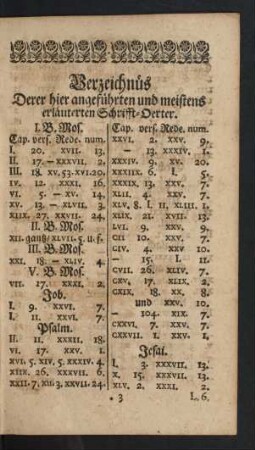 Verzeichnüs
Derer hier angeführten und meistens
erläuterten Schrifft-Oerter.
I. B. Mos.
Cap. vers. Rede. num.
I. 20. XVII. 13.
II. 17.- XXXVII. 2.
III. 18. XV. 53. XVI. 20.
IV. 12. XXXI. 16.
VI. 5. - XV. 14.
XV. 13. - XLVII. 3.
XLIX. 27. XXII. 24.
II. B. Mos.
XII. gantz/ XLVII. 5. u. f.
III. B. Mos.
XXI. 18. - XLIV. 4.
V. B. Mos.
VII. 17. XXXI. 2.
Job.
I. 9. XXVI. 7.
I. 11. XXVI. 7.
Psalm.
II. 11. XXXII. 18.
VI. 17. XXV. 1.
XVI. 5. XIV. 5. XXXIV. 4.
XIX. 26. XXXVII. 6.
XXII. 7. XII. 3. XXVII. 24.
Cap. vers. Rede. num.
XXVI. 2. XXV. 9.
— 13. XXXIV. 1.
XXXIV. 9. XV. 20.
XXXIIX. 6. I. 5.
XXXIX. 13. XXV. 7.
XLII. 4. XXV. 7.
XLV. 8. I. II. XLIII. 1. 3
XLIX. 21. XVII. 13.
LVI. 9. XXV. 9.
CII. 10. XXV. 7.
CIV. 4. XXV. 10.
— 15. I. 11.
CVII. 26. XLIV. 7.
CXV. 17. XLIX. 2.
CXIX. 18. XX. 8.
und XXV. 10.
— 104. XIX. 7.
CXXVI. 7. XXV. 7.
CXXVII. 1. XXV. 1.
Jesai.
I. 3. XXXVII. 13.
X. 15. XXXVII. 13.
XLV. 2. XXXI. 2.
* 3 L. 6.